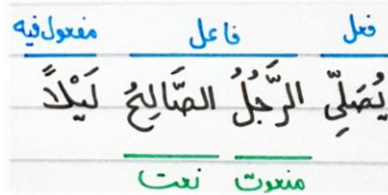 فعل فاعل مفعول فيه
يُصَلِّي الرَّجُلُ الصَّالِحُ لَيْلًا
منعوت نعت